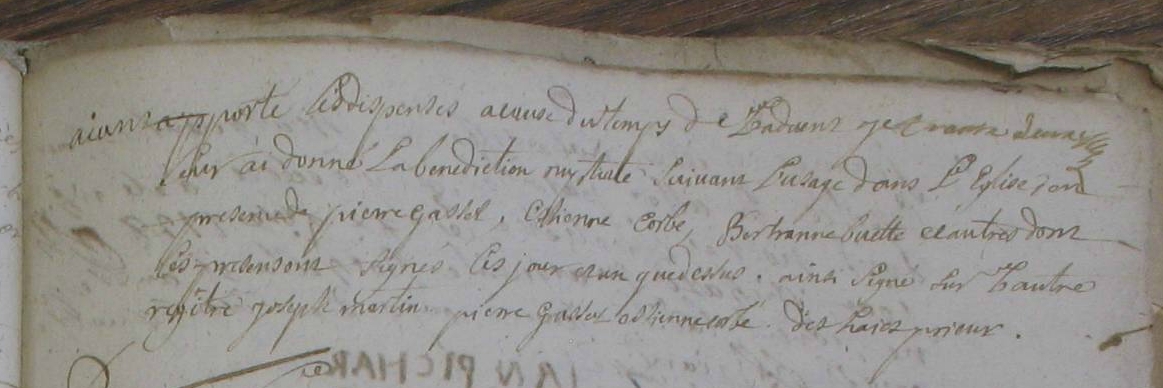 aiant apporté les dispenses acause du temps de Ladvent je
leur ai donné La benediction nuptiale suivant Lusage dans L'Eglise, en
presence de pierre gasset, Estienne corbe, Bertranne buette et autres dont
les presens ont signés les jour et an que dessus. ainsi signé sur Lautre
regitre joseph martin. pierre gasset estienne corbé. des haies prieur.